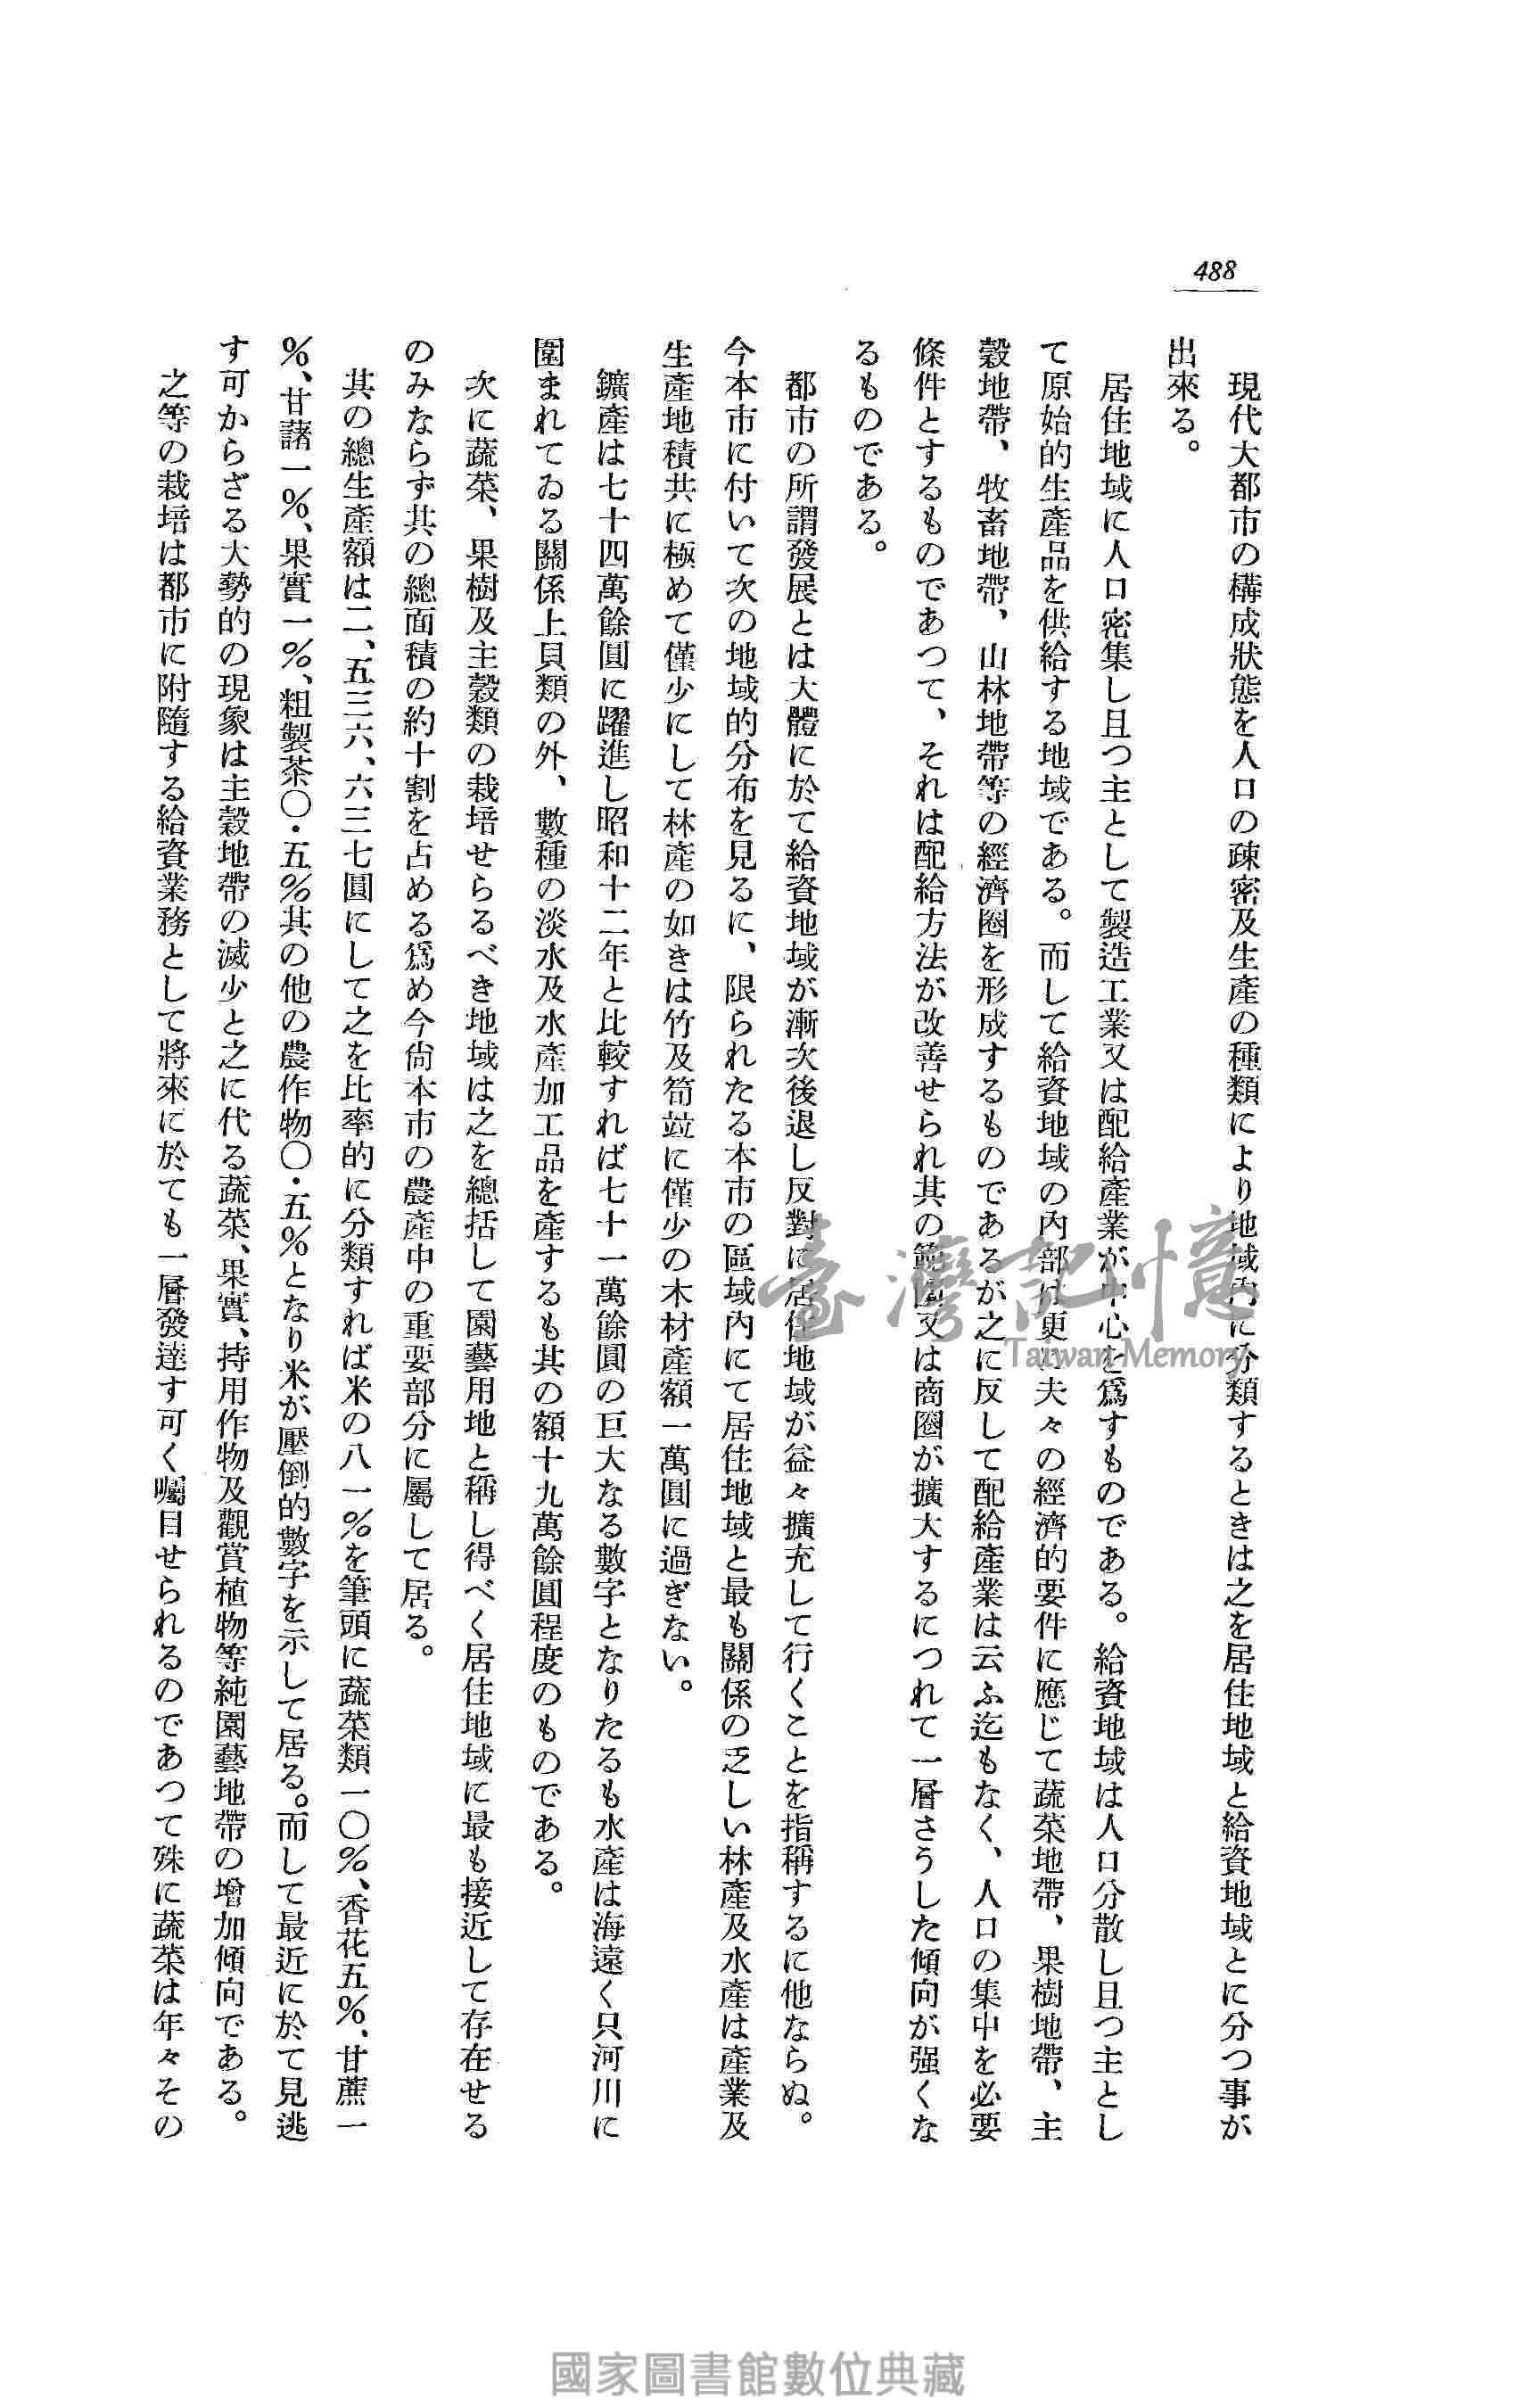 488
現代大都市の構成狀態を人口の疎密及生產の種類により地域內に分類するときは之を居住地域と給資地域とに分つ事が
出來る。
居住地域に人口密集し且つ主として製造工業又は配給產業が中心を爲すものである。給資地域は人口分散し且つ主とし
て原始的生產品を供給する地域である。而して給資地域の內部は更に夫々の經濟的要件に應じて蔬菜地帶、果樹地帶、主
穀地帶、牧畜地帶、山林地帶等の經濟圈を形成するものであるが之に反して配給產業は云ふ迄もなく、人口の集中を必要
條件とするものであつて、それは配給方法が改善せられ其の範圍又は商圈が擴大するにつれて一層さうした傾向が强くな
るものである。
都市の所謂發展とは大體に於て給資地域が漸次後退し反對に居住地域が益々擴充して行くことを指稱するに他ならぬ。
今本市に付いて次の地域的分布を見るに、限られたる本市の區域內にて居住地域と最も關係の乏しい林產及水產は產業及
生產地積共に極めて僅少にして林產の如きは竹及筍竝に僅少の木材產額一萬圓に過ぎない。
鑛產は七十四萬餘圓に躍進し昭和十二年と比較すれば七十一萬餘圓の巨大なる數字となりたるも水產は海遠く只河川に
圍まれてゐる關係上貝類の外、數種の淡水及水產加工品を產するも其の額十九萬餘圓程度のものである。
次に蔬菜、果樹及主穀類の栽培せらるべき地域は之を總括して園藝用地と稱し得べく居住地域に最も接近して存在せる
のみならず其の總面積の約十割を占める爲め今尙本市の農產中の重要部分に屬して居る。
其の總生產額は二、五三六、六三七圓にして之を比率的に分類すれば米の八一％を筆頭に蔬菜類一〇％、香花五％、甘蔗一
％、甘藷一％、果實一％、粗製茶〇・五％其の他の農作物〇・五％となり米が壓倒的數字を示して居る。而して最近に於て見逃
す可からざる大勢的の現象は主穀地帶の減少と之に代る蔬菜、果實、持用作物及觀賞植物等純園藝地帶の增加傾向である。
之等の栽培は都市に附隨する給資業務として將來に於ても一層發達す可く囑目せられるのであつて殊に蔬菜は年々その
臺灣記憶
Taiwan Memory
國家圖書館數位典藏